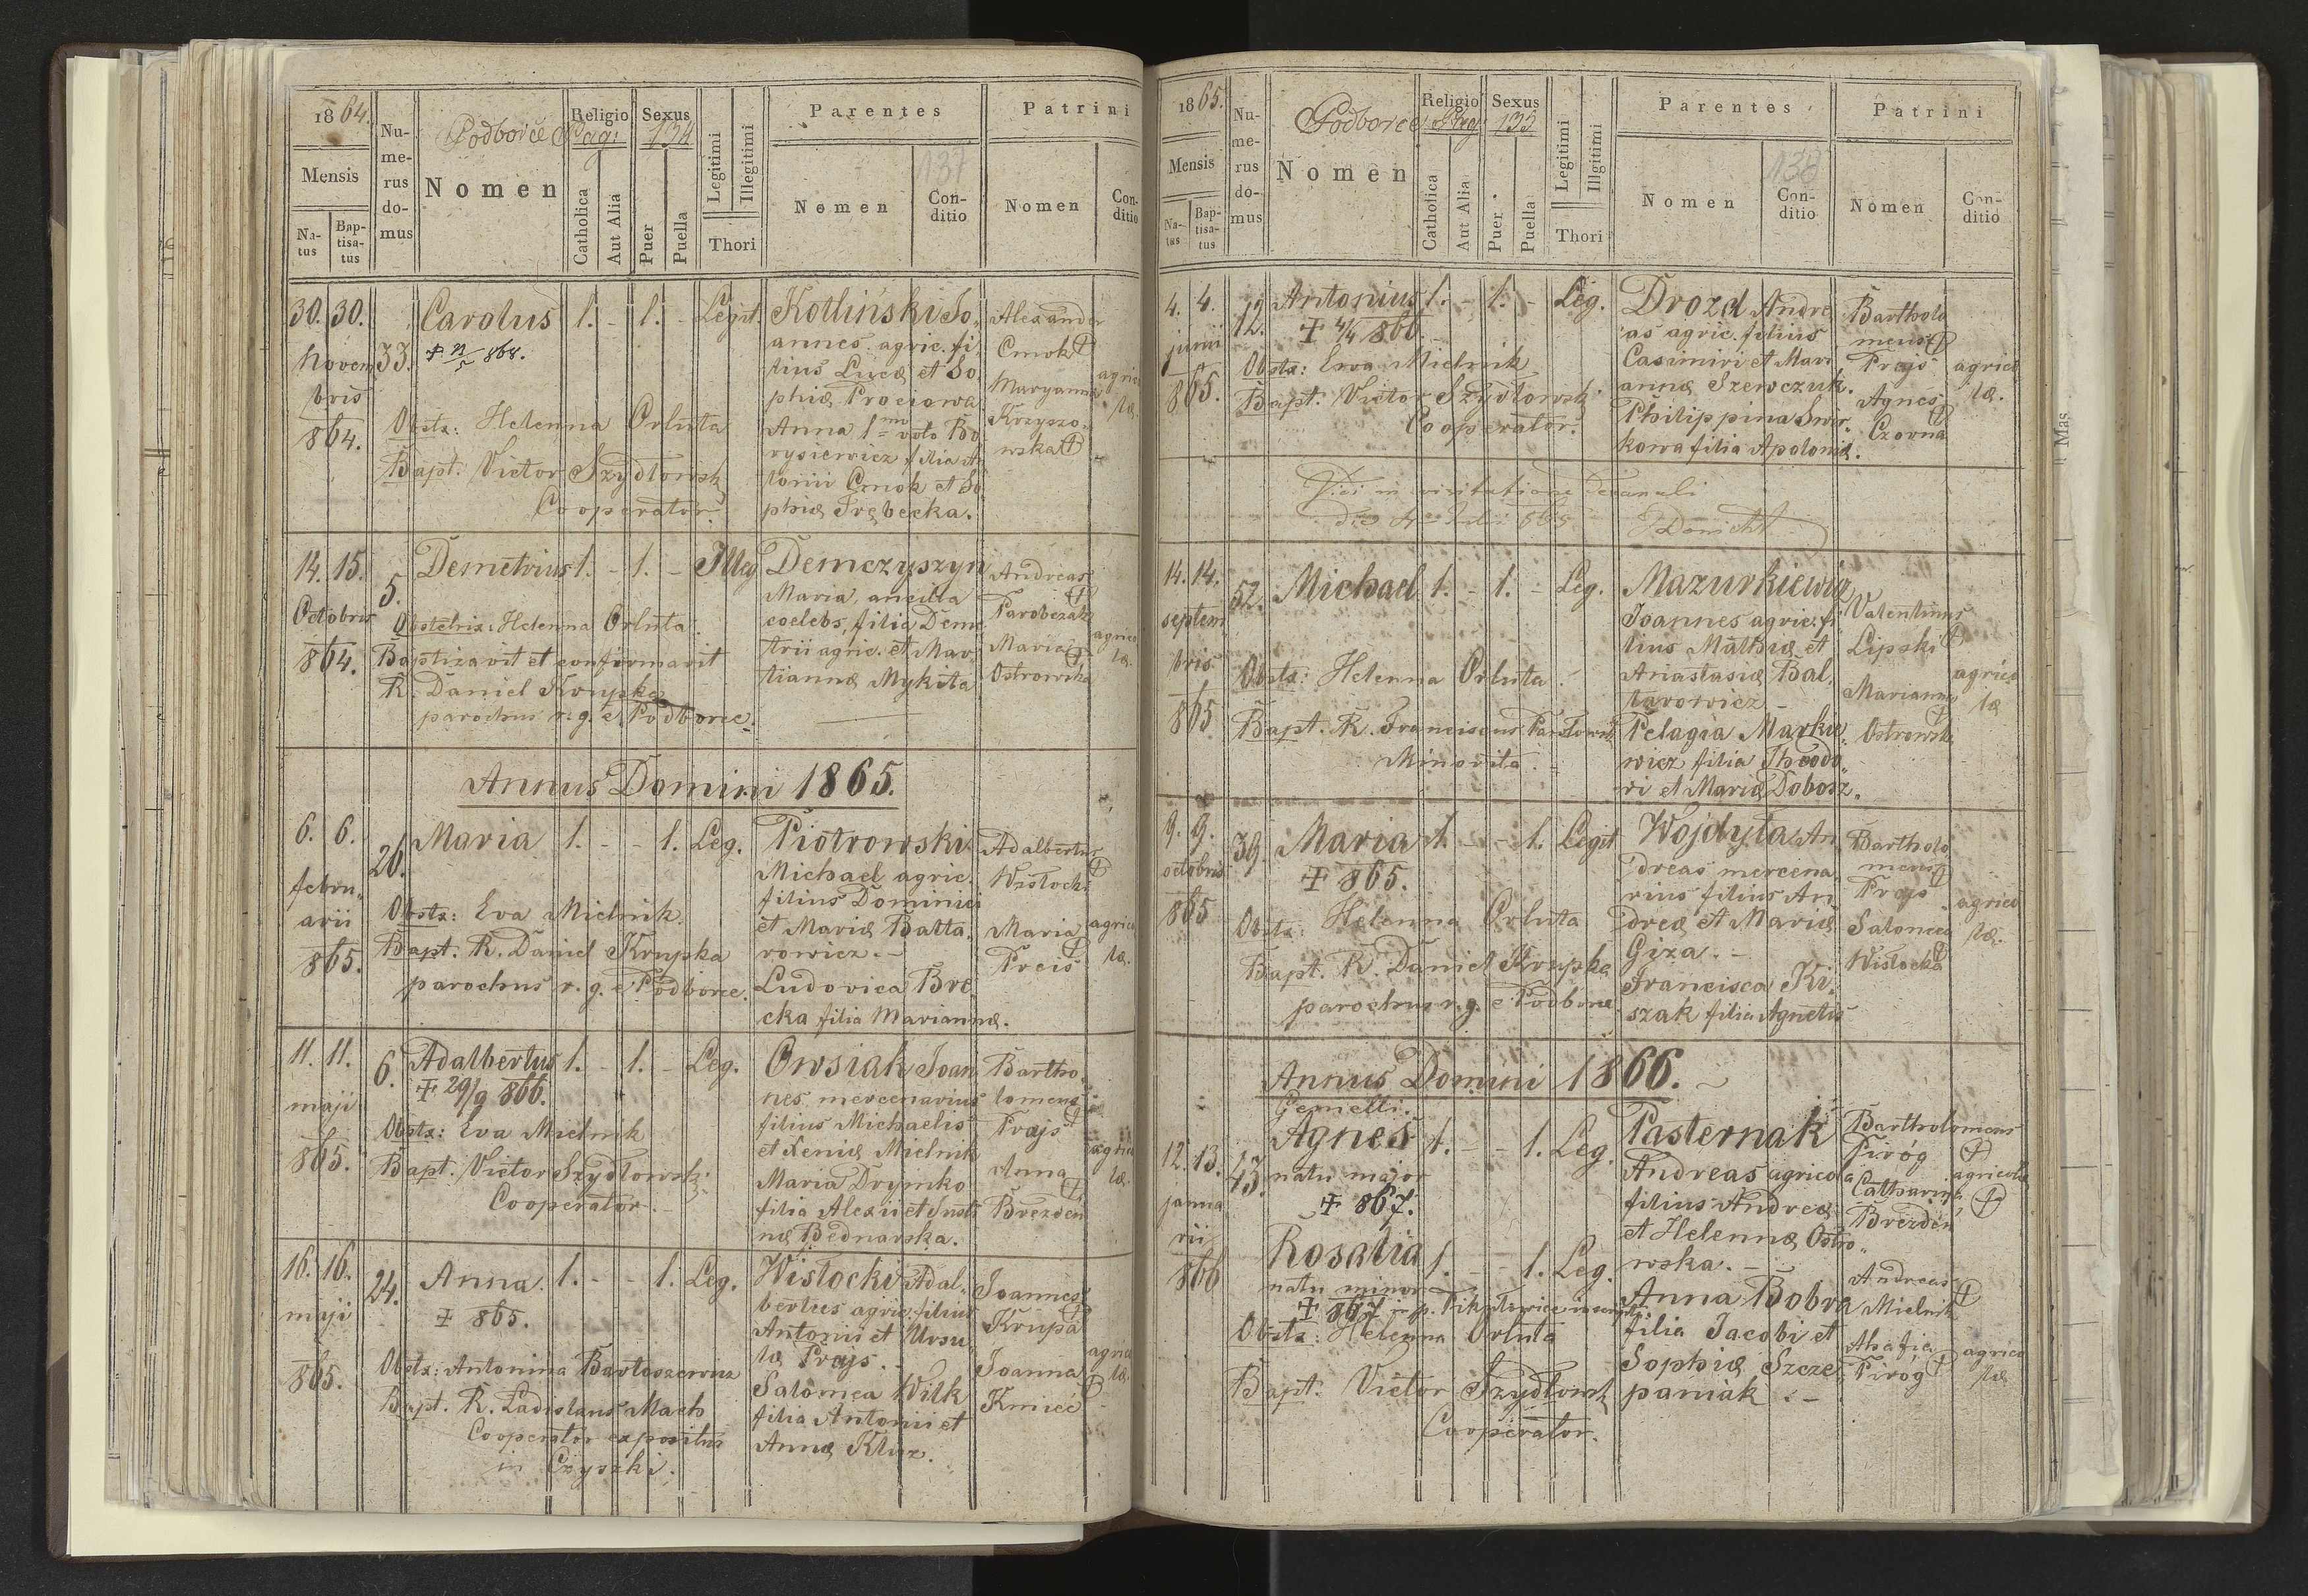 1864.
Mensis
Na-
tus
Bap-
tisa-
tus
Nu-
me-
rus
do-
mus
Podborce Pag: 134
Nomen
Religio
Catholica
Aut Alia
Sexus
Puer
Puella
Legitimi
Illegitimi
Thori
Parentes
137
Nomen
Con-
ditio
Patrini
Nomen
Con-
ditio
30. 30.
Novem
bris
864.
33.
Carolus 1. - 1. - Legit.
Obstx: Helenna Orluta
Bapt. Victor Szydlowski
Cooperator.
Kotliński Jo-
annes agric. fi-
lius Lucæ et So-
phiæ Procrowa
Anna 1mo voto Bo
rysiewicz filia An
tonii Cmok et So
phiæ Trębecka.
Alexander
Cmok
Maryanna
Krzyszo-
wska
agrico
læ.
14. 15.
Octobris
864.
5.
Demetrius 1. - 1. - Illeg
Obstetrix: Helenna Orluta.
Baptizavit et confirmavit
R. Daniel Krupka
parochus r. g. e Podborce.
Demczyszyn
Maria, ancilla
coelebs, filia Deme
trii agric. et Mar-
tianna Mykita
Andreas
Parobczak
Maria
Ostrowska
agrico
læ.
Annus Domini 1865.
6. 6.
febru-
arii
865.
26.
Maria 1. - - 1. Leg.
Obstx: Eva Mielnik.
Bapt. R. Daniel Krupka
parochus r. g. e Podborce.
Piotrowski
Michael agric.
filius Dominici
et Mariæ Balta-
rowicz. -
Ludovica Bre-
cka filia Mariannæ.
Adalbertus
Wisłocki
Maria
Preis
agrico
læ.
11. 11.
maji
865.
6.
Adalbertus 1. - 1. - Leg.
+ 29/9 866.
Obstx: Eva Mielnik
Bapt. Victor Szydlowski
Cooperator.
Owsiak Joan
nes mercenarius
filius Michaelis
et Xeniæ Mielnik
Maria Drymko
filia Alexii et Justi
næ Bednarska.
Bartho-
lomeus
Prajs
Anna
Brezden
agrico
læ.
16. 16.
maji
865.
24.
Anna. 1. - - 1. Leg.
+ 865.
Obstx: Antonina Bartoszewicz
Bapt. R. Ladislaus Mach
Cooperator expositus
in Czyszki.
Wisłocki Adal-
bertus agric. filius
Antonii et Ursu-
læ Prajs. -
Salomea Wilk
filia Antonii et
Annæ Kluz.
Joannes
Krupa
Joanna
Kmieć
agrico
læ.
1865.
Mensis
Na-
tus
Bap-
tisa-
tus
Nu-
me-
rus
do-
mus
Podborce Pag: 135
Nomen
Religio
Catholica
Aut Alia
Sexus
Puer
Puella
Legitimi
Illgitimi
Thori
Parentes
138
Nomen
Con-
ditio
Patrini
Nomen
Con-
ditio
4. 4.
junii
865.
12.
Antonius 1. - 1. - Leg.
+ 4/4 866.
Obstx: Ewa Mielnik
Bapt. Victor Szydlowski
Cooperator.
Drozd Andre
as agric. filius
Casimiri et Mari
annæ Szewczuk.
Philippina Swir-
kowa filia Apoloniæ.
Bartholo
meus
Prajs
Agnes
Czorna
agrico
læ.
Vidi in visitatione decanali
14. 14.
septem
bris
865
52.
Michael 1. - 1. - Leg.
Obstx: Helenna Orluta.
Bapt. R. Franciscus Pawłowski
Minorita. -
Mazurkiewicz
Joannes agric. fi-
lius Mathiæ et
Anastasiæ Bal-
tarowicz -
Pelagia Markie-
wicz filia Theodo-
ri et Mariæ Dobosz.
Valentinus
Lipski
Marianna
Ostrowska
agrico
læ
9. 9.
octobris
865
39.
Maria 1. - - 1. Legit
+ 865.
Obstx: Helenna Orluta
Bapt. R. Daniel Krupka
parochus r. g. e Podborce
Wojdyła An
dreas mercena
rius filius An
dreæ et Mariæ
Giza. -
Francisca Ki-
szak filia Agnetis
Bartholo
meus
Prajs
Salomea
Wisłocka
agrico
læ.
Annus Domini 1866.
12. 13.
janua
rii
866
43.
Gemelli.
Agnes 1. - - 1. Leg.
natu major
+ 867.
Rosalia 1. - - 1. Leg.
natu minor
Obstx: Helenna Orluta
Bapt. Victor Szydlowski
Cooperator.
Pasternak
Andreas agricola
filius Andreæ
et Helennæ Ostro-
wska. -
Anna Bobra
filia Jacobi et
Sophiæ Szcze-
paniak. -
Bartholomeus
Piróg
Catharina
Brezdeń
agricolæ
Andreas
Mielnik
Ahafia
Piróg
agrico
læ
Mas